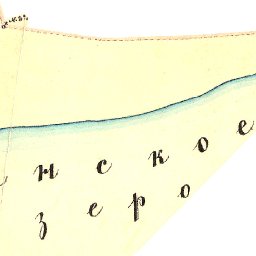 нское
зеро